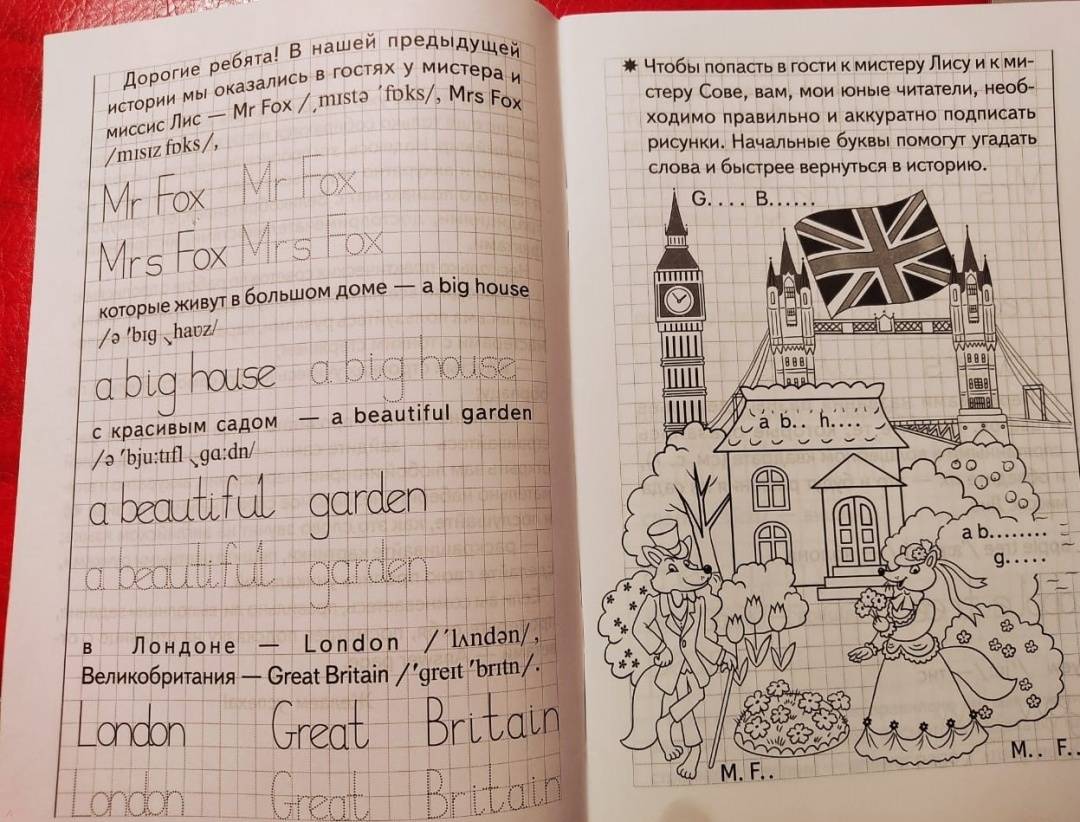 Дорогие ребята! В нашей предыдущей
истории мы оказались в гостях у мистера и
миссис Лис — Mr Fox /ˌmɪstə ˈfɒks/, Mrs Fox
/mɪsɪz fɒks/,
Mr Fox Mr Fox
Mrs Fox Mrs Fox
которые живут в большом доме — a big house
/ə ˈbɪg ˎhaʊz/
a big house a big house
с красивым садом — a beautiful garden
/ə ˈbju:tɪfl ˎgɑ:dn/
a beautiful garden
a beautiful garden
в Лондоне — London /ˈlʌndən/,
Великобритания — Great Britain /ˈgreɪt ˈbrɪtn/.
London Great Britain
London Great Britain
✷ Чтобы попасть в гости к мистеру Лису и к ми-
стеру Сове, вам, мои юные читатели, необ-
ходимо правильно и аккуратно подписать
рисунки. Начальные буквы помогут угадать
слова и быстрее вернуться в историю.
G.... B......
a b.. h....
a b........
g.....
M. F..
M.. F..